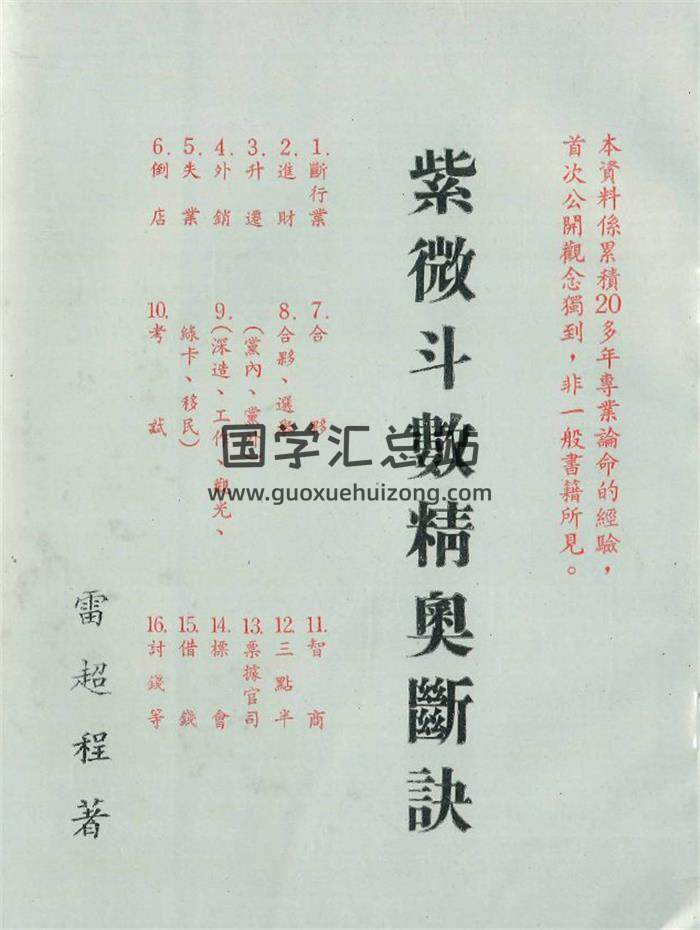 本資料係累積20多年專業論命的經驗，
首次公開觀念獨到，非一般書籍所見。
紫微斗數精奧斷訣
1.斷行業
2.進財
3.升遷
4.外銷
5.失業
6.倒店
7.合夥
8.合夥、選舉
(黨內、黨
9.(深造、工作、觀光、
綠卡、移民)
10.考試
11.智商
12.三點半
13.票據官司
14.標會
15.借錢
16.討錢等
雷超程著
国学汇总站
www.guoxuehuizong.com